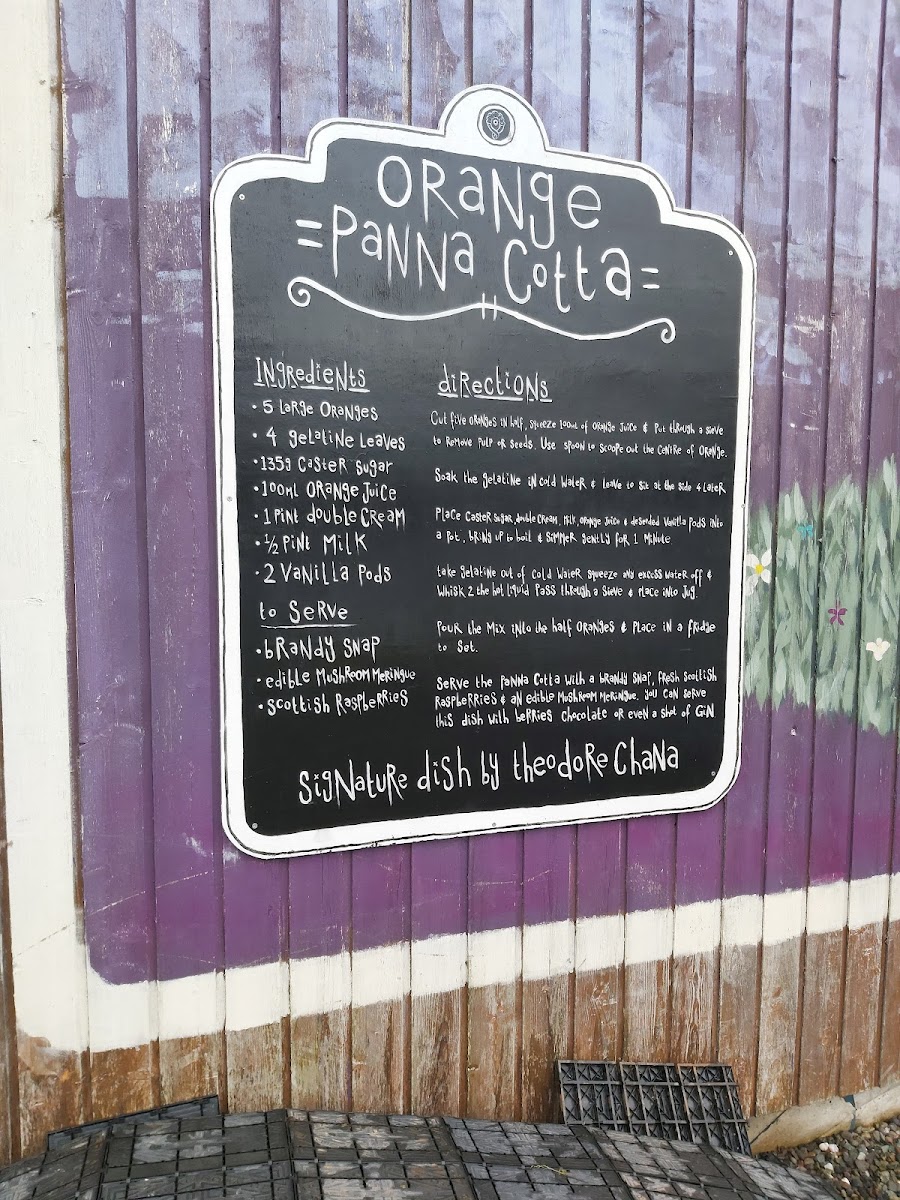 Orange
=Panna Cotta=
Ingredients
• 5 Large Oranges
• 4 gelatine leaves
• 135g Caster Sugar
• 100ml Orange Juice
• 1 Pint double Cream
• ½ Pint Milk
• 2 Vanilla Pods
to Serve
• brandy Snap
• edible Mushroom Meringue
• Scottish Raspberries
directions
Cut five oranges in half, squeeze 100ml of orange juice & Put through a sieve
to remove Pulp or Seeds. Use spoon to scoope out the centre of orange.
Soak the gelatine in cold water & leave to sit at the side 4 later
Place caster sugar, double cream, milk, orange juice & deseeded vanilla pods into
a pot, bring up to boil & simmer gently for 1 minute
take gelatine out of cold water squeeze any excess water off &
whisk 2 the hot liquid pass through a sieve & place into jug.
Pour the mix into the half oranges & place in a fridge
to set.
Serve the panna cotta with a brandy snap, fresh scottish
raspberries & an edible mushroom meringue. you can serve
this dish with berries chocolate or even a shot of gin
Signature dish by theodore Chana